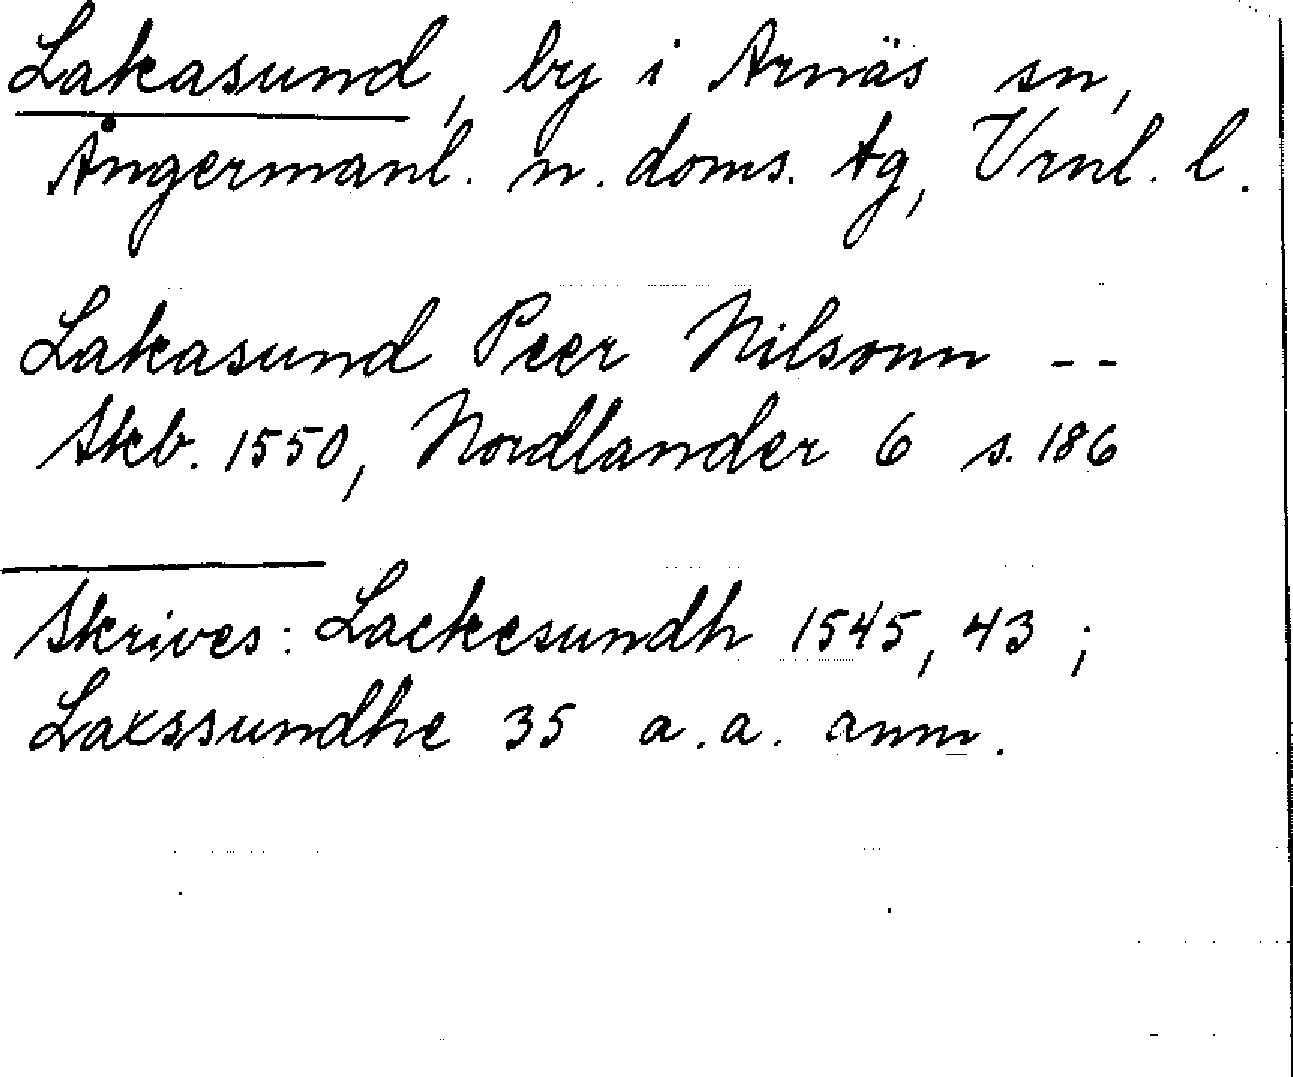 Lakasund, by i Arnäs sn,
Ångermanl. n. doms. tg, Vrnl. l.
Lakasund Peer Nilsonn --
Skb. 1550, Nordlander 6 s. 186
Skrives: Lackesundh 1545, 43;
Laxssundhe 35 a.a. anm.